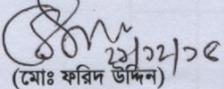 ২৯/১২/১৫
(মোঃ ফরিদ উদ্দিন)